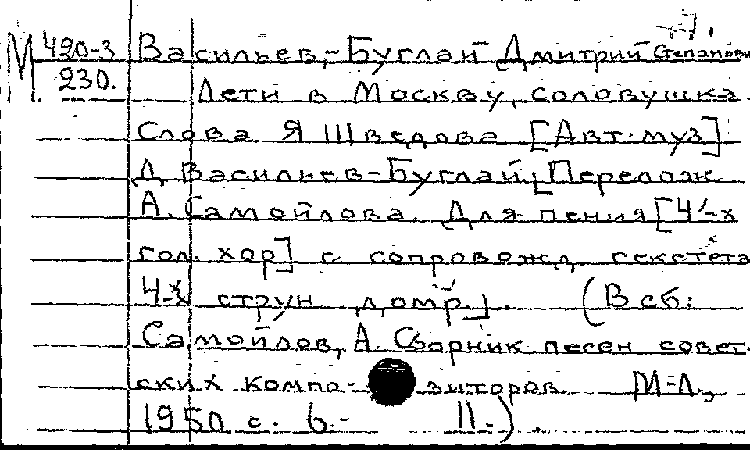 М 420-3 Васильев-Буглай Дмитрий Степанович
230. Лети в Москву, соловушка.
Слова Я Шведова [Авт. муз]
Д Васильев-Буглай, [Перелож.
А. Самойлова. Для пения [4-х
гол. хор] с сопровожд. секстета
4-х струн домр.]. (В сб:
Самойлов, А. Сборник песен совет-
ских компо-зиторов М-Л.,
1950 с. 6.- 11.).